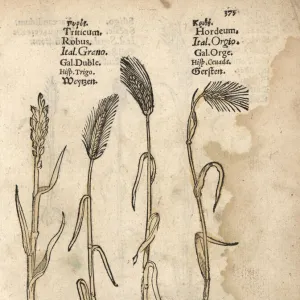 375
πυρὸς.
Triticum.
Robus.
Ital. Grano.
Gal. Duble.
Hisp. Trigo.
Weytzen.
Κριθὴ.
Hordeum.
Ital. Orgio.
Gal. Orge.
Hisp. Ceuada.
Gersten.